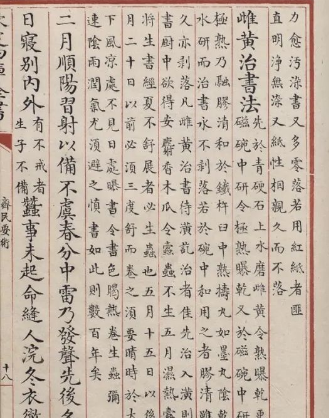 力愈汚染書又多零落若用紅紙者匪
直明淨無染又紙性相親久而不落
雌黃治書法
先於青硬石上水磨雌黃令熟曝乾
磁碗中研令極熟曝乾又於磁碗中研
極熟乃融膠清和於鐵杵臼中熟擣丸如墨丸陰乾
水研而治書水不剥落若於碗中和用之者膠清雖
久亦剥落凡雌黃治書待潢訖治者佳先治入潢
書厨中欲得安麝香木瓜令蠹蟲不生五月濕熱蠹
將生書經夏不舒展者必生蟲也五月十五日以後
月二十日以前必須三度舒而卷之須要晴時於大
下風凉處不見日處曝書令書色暍熱卷生蟲彌
速陰雨潤氣尤須避之慎書如此則數百年矣
二月順陽習射以備不虞春分中雷乃發聲先後各
日寢别內外
有不戒者
生子不備
蠶事未起命縫人浣冬衣徹
齊民要術
十八